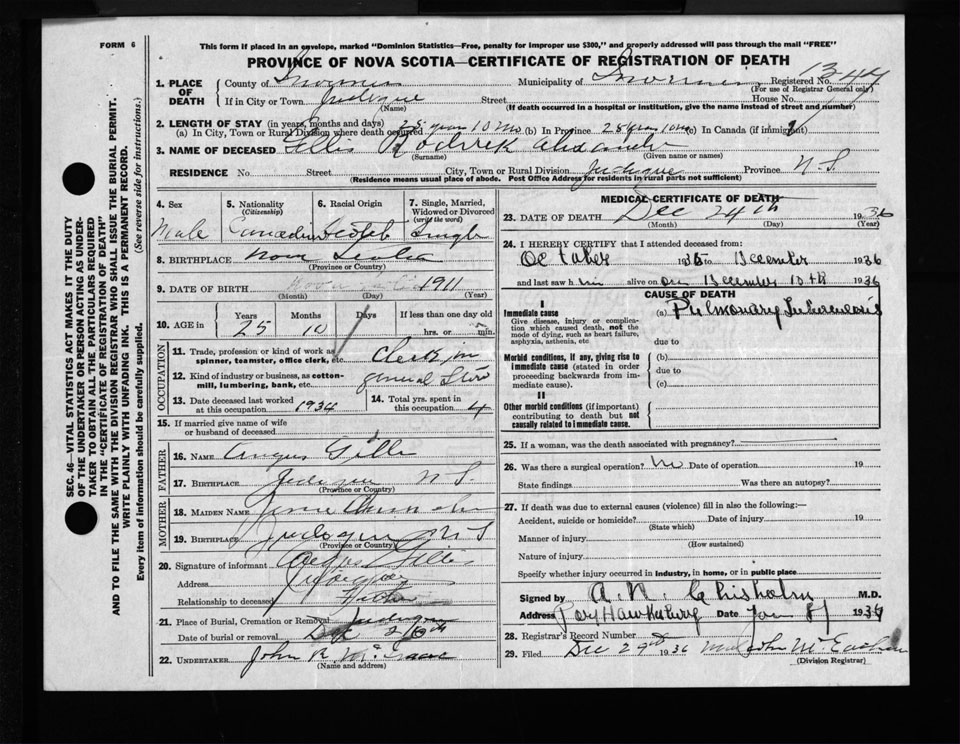 FORM 6
This form if placed in an envelope, marked "Dominion Statistics—Free, penalty for improper use $300," and properly addressed will pass through the mail "FREE"
PROVINCE OF NOVA SCOTIA—CERTIFICATE OF REGISTRATION OF DEATH
1. PLACE OF DEATH
County of Inverness Municipality of Inverness Registered No. 1347
(For use of Registrar General only)
If in City or Town Judique Street House No.
(Name) (If death occurred in a hospital or institution, give the name instead of street and number)
2. LENGTH OF STAY (in years, months and days)
(a) In City, Town or Rural Division where death occurred 25 years 10 mos (b) In Province 25 yrs 10 mo (c) In Canada (if immigrant)
3. NAME OF DECEASED Gillis Roderick Alexander
(Surname) (Given name or names)
RESIDENCE No. Street City, Town or Rural Division Judique Province N.S.
(Residence means usual place of abode. Post Office Address for residents in rural parts not sufficient)
4. Sex
Male
5. Nationality (Citizenship)
Canadian
6. Racial Origin
Scotch
7. Single, Married, Widowed or Divorced (write the word)
Single
8. BIRTHPLACE Nova Scotia
(Province or Country)
9. DATE OF BIRTH 1911
(Month) (Day) (Year)
10. AGE in Years Months Days If less than one day old
25 10 hrs. or min.
OCCUPATION
11. Trade, profession or kind of work as spinner, teamster, office clerk, etc. Clerk in
12. Kind of industry or business, as cotton-mill, lumbering, bank, etc. general Store
13. Date deceased last worked at this occupation 1934
14. Total yrs. spent in this occupation 4
15. If married give name of wife or husband of deceased
FATHER
16. NAME Angus Gillis
17. BIRTHPLACE Judique N.S.
(Province or Country)
MOTHER
18. MAIDEN NAME
19. BIRTHPLACE Judique N S
(Province or Country)
20. Signature of informant Angus Gillis
Address Judique
Relationship to deceased Father
21. Place of Burial, Cremation or Removal Judique
Date of burial or removal Dec 26th
22. UNDERTAKER John R
(Name and address)
MEDICAL CERTIFICATE OF DEATH
23. DATE OF DEATH Dec 24th 1936
(Month) (Day) (Year)
24. I HEREBY CERTIFY that I attended deceased from:
October 1935 to December 1936
and last saw him alive on December 1936
CAUSE OF DEATH
I
Immediate cause
Give disease, injury or complication which caused death, not the mode of dying, such as heart failure, asphyxia, asthenia, etc
(a) Pulmonary Tuberculosis
due to
Morbid conditions, if any, giving rise to immediate cause (stated in order proceeding backwards from immediate cause).
(b)
due to
(c)
II
Other morbid conditions (if important) contributing to death but not causally related to immediate cause.
25. If a woman, was the death associated with pregnancy?
26. Was there a surgical operation? No Date of operation 19
State findings Was there an autopsy?
27. If death was due to external causes (violence) fill in also the following:—
Accident, suicide or homicide? Date of injury 19
(State which)
Manner of injury
(How sustained)
Nature of injury
Specify whether injury occurred in industry, in home, or in public place
Signed by A. N. Chisholm M.D.
Address Port Hawkesbury Date Jan
28. Registrar's Record Number
29. Filed Dec 29th 1936 John McEachern
(Division Registrar)
SEC. 46—VITAL STATISTICS ACT MAKES IT THE DUTY
OF THE UNDERTAKER OR PERSON ACTING AS UNDERTAKER TO OBTAIN ALL THE PARTICULARS REQUIRED
IN THE "CERTIFICATE OF REGISTRATION OF DEATH"
AND TO FILE THE SAME WITH THE DIVISION REGISTRAR WHO SHALL ISSUE THE BURIAL PERMIT.
WRITE PLAINLY WITH UNFADING INK. THIS IS A PERMANENT RECORD.
Every item of information should be carefully supplied. (See reverse side for instructions.)